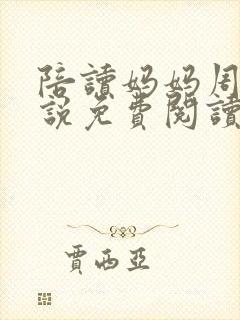 陪讀妈妈周
說免費閱讀
賈西亞